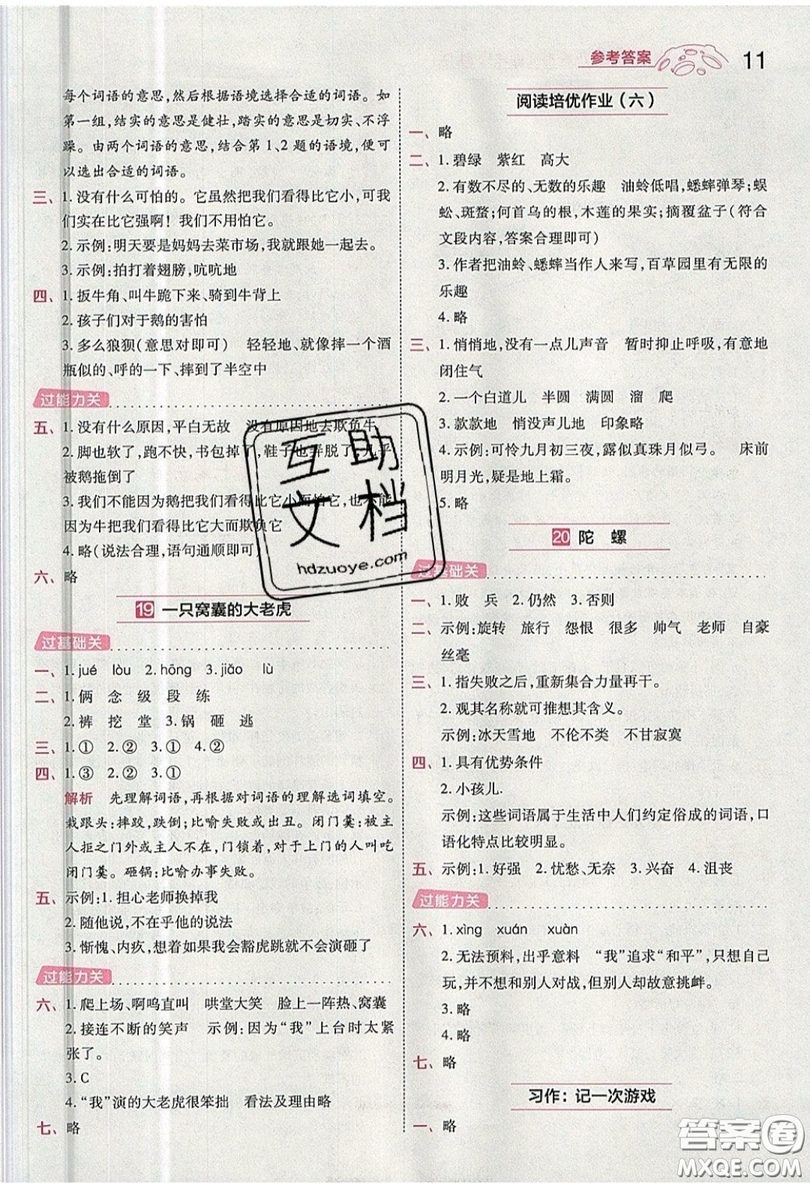 参考答案
11
每个词语的意思,然后根据语境选择合适的词语。如
第一组,结实的意思是健壮,踏实的意思是切实、不浮
躁。由两个词语的意思,结合第1、2题的语境,便可
以选出合适的词语。
三、1.没有什么可怕的。它虽然把我们看得比它小,可我
们实在比它强啊!我们不用怕它。
2.示例:明天要是妈妈去菜市场,我就跟她一起去。
3.示例:拍打着翅膀,吭吭地
四、1.扳牛角、叫牛跪下来、骑到牛背上
2.孩子们对于鹅的害怕
3.多么狼狈(意思对即可) 轻轻地、就像摔一个酒
瓶似的、呼的一下、摔到了半空中
过能力关
五、1.没有什么原因,平白无故 没有原因地去欺负牛
2.脚也软了,跑不快,书包掉了,鞋子也弄脱了
被鹅拖倒了
3.我们不能因为鹅把我们看得比它小而怕它,也不能
因为牛把我们看得比它大而欺负它
4.略(说法合理,语句通顺即可)
六、略
19 一只窝囊的大老虎
过基础关
一、1.jué lòu 2.hōng 3.jiǎo lù
二、1.俩 念 级 段 练
2.裤 挖 堂 3.锅 砸 逃
三、1.① 2.② 3.① 4.②
四、1.③ 2.② 3.①
解析 先理解词语,再根据对词语的理解选词填空。
栽跟头:摔跤,跌倒;比喻失败或出丑。闭门羹:被主
人拒之门外或主人不在,门锁着,对于上门的人叫吃
闭门羹。砸锅:比喻办事失败。
五、示例:1.担心老师换掉我
2.随他说,不在乎他的说法
3.惭愧、内疚,想着如果我会豁虎跳就不会演砸了
过能力关
六、1.爬上场、啊呜直叫 哄堂大笑 脸上一阵热、窝囊
2.接连不断的笑声 示例:因为“我”上台时太紧
张了。
3.C
4.“我”演的大老虎很笨拙 看法及理由略
七、略
阅读培优作业(六)
一、略
二、1.碧绿 紫红 高大
2.有数不尽的、无数的乐趣 油蛉低唱,蟋蟀弹琴;蜈
蚣、斑蝥;何首乌的根,木莲的果实;摘覆盆子(符合
文段内容,答案合理即可)
3.作者把油蛉、蟋蟀当作人来写,百草园里有无尽的
乐趣
4.略
三、1.悄悄地,没有一点儿声音 暂时抑止呼吸,有意地
闭住气
2.一个白道儿 半圆 满圆 溜 爬
3.款款地 悄没声息地 印象略
4.示例:可怜九月初三夜,露似真珠月似弓。 床前
明月光,疑是地上霜。
5.略
20 陀 螺
过基础关
一、1.败 兵 2.仍然 3.否则
二、示例:旋转 旅行 怨恨 很多 帅气 老师 自豪
丝毫
三、1.指失败之后,重新集合力量再干。
2.观其名称就可推想其含义。
示例:冰天雪地 不伦不类 不甘寂寞
四、1.具有优势条件
2.小孩儿.
示例:这些词语属于生活中人们约定俗成的词语,口
语化特点比较明显。
五、示例:1.好强 2.忧愁、无奈 3.兴奋 4.沮丧
过能力关
六、1.xìng xuán xuàn
2.无法预料,出乎意料 “我”追求“和平”,只想自己
玩,并不想和别人对战,但别人却故意挑衅。
3.略
4.略
七、略
习作:记一次游戏
一、略
互助
文档
hdzuoye.com
答案圈
MXQE.COM